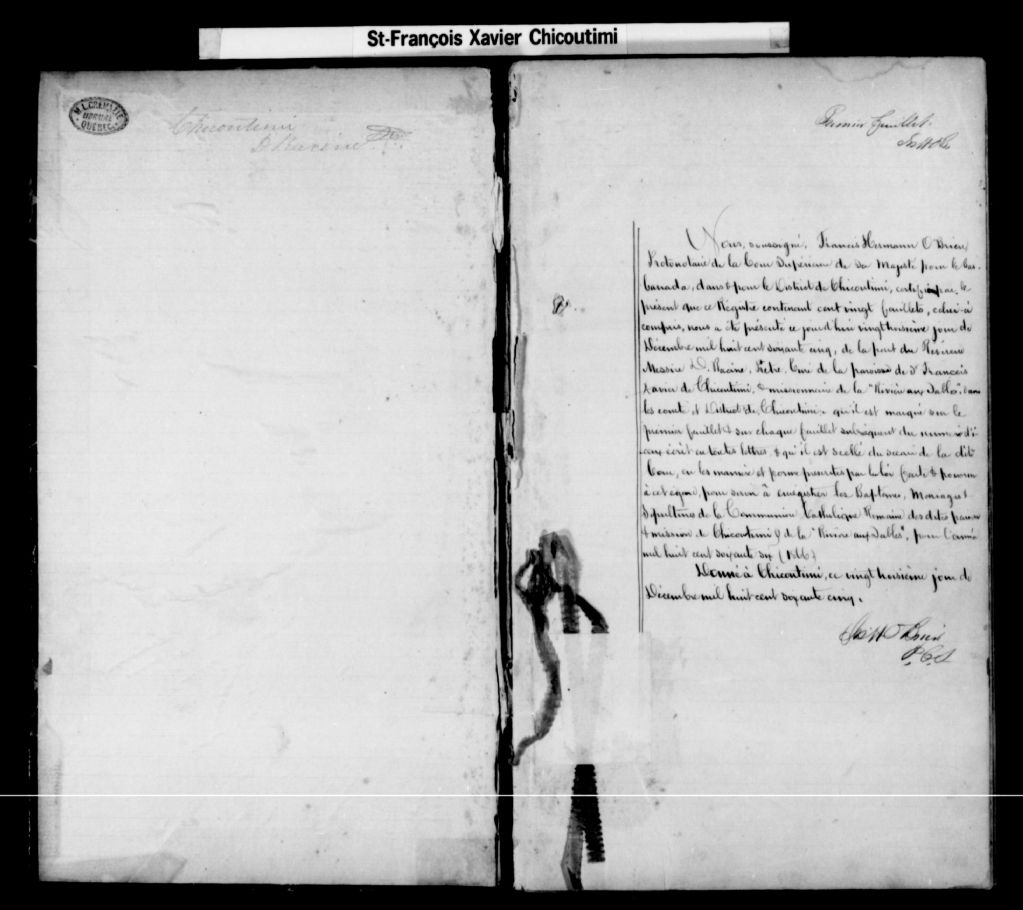 St-François Xavier Chicoutimi
M. L. CREMAZIE
QUEBEC
Chicoutimi
D Racine Ptre
Premier feuillet.
Nous, soussigné, Francis Hermann O'Brien
Protonotaire de la Cour Supérieure de Sa Majesté pour le Bas-
Canada, dans & pour le District de Chicoutimi, certifions par le
présent que ce Régistre contenant cent vingt feuillets, celui-ci
compris, nous a été présenté ce jourd'hui vingt troisième jour de
Décembre mil huit cent soixante cinq, de la part du Révérend
Messire D. Racine, Prêtre, Curé de la paroisse de St Francois
Xavier de Chicoutimi, & missionnaire de la "Rivière aux Sables" dans
les comté & District de Chicoutimi. qu'il est marqué sur le
premier feuillet & sur chaque feuillet subséquent du numero d'i-
ceux écrit en toutes lettres, & qu'il est scellé du sceau de la dite
Cour, en la manière et forme prescrites par la loi faite & pourvue
à cet égard, pour servir à enregistrer les Baptêmes, Mariages &
Sépultures de la Communion Catholique Romaine des dites paroisse
& mission de Chicoutimi & de la "Rivière aux Sables", pour l'année
mil huit cent soixante six (1866)
Donné à Chicoutimi, ce vingt troisième jour de
Décembre mil huit cent soixante cinq.
P.C.S